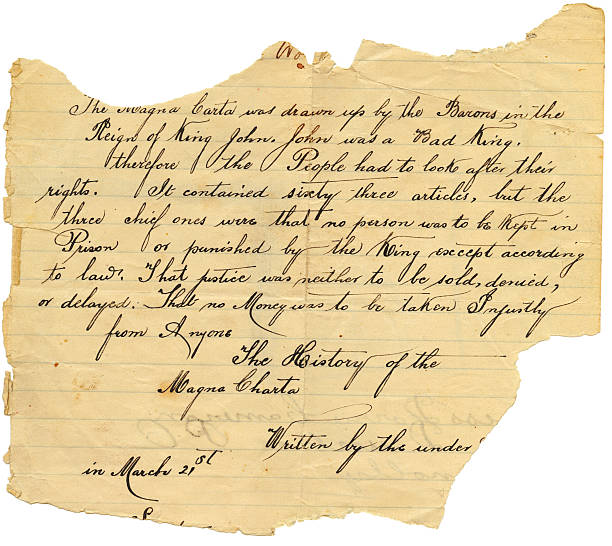 No
The Magna Carta was drawn up by the Barons in the
Reign of King John. John was a Bad King.
therefore the People had to look after their
rights. It contained sixty three articles, but the
three chief ones were that no person was to be Kept in
Prison or punished by the King except according
to law. That justice was neither to be sold, denied,
or delayed. That no Money was to be taken Injustly
from Anyone
The History of the
Magna Charta
Written by the under
in March 21st